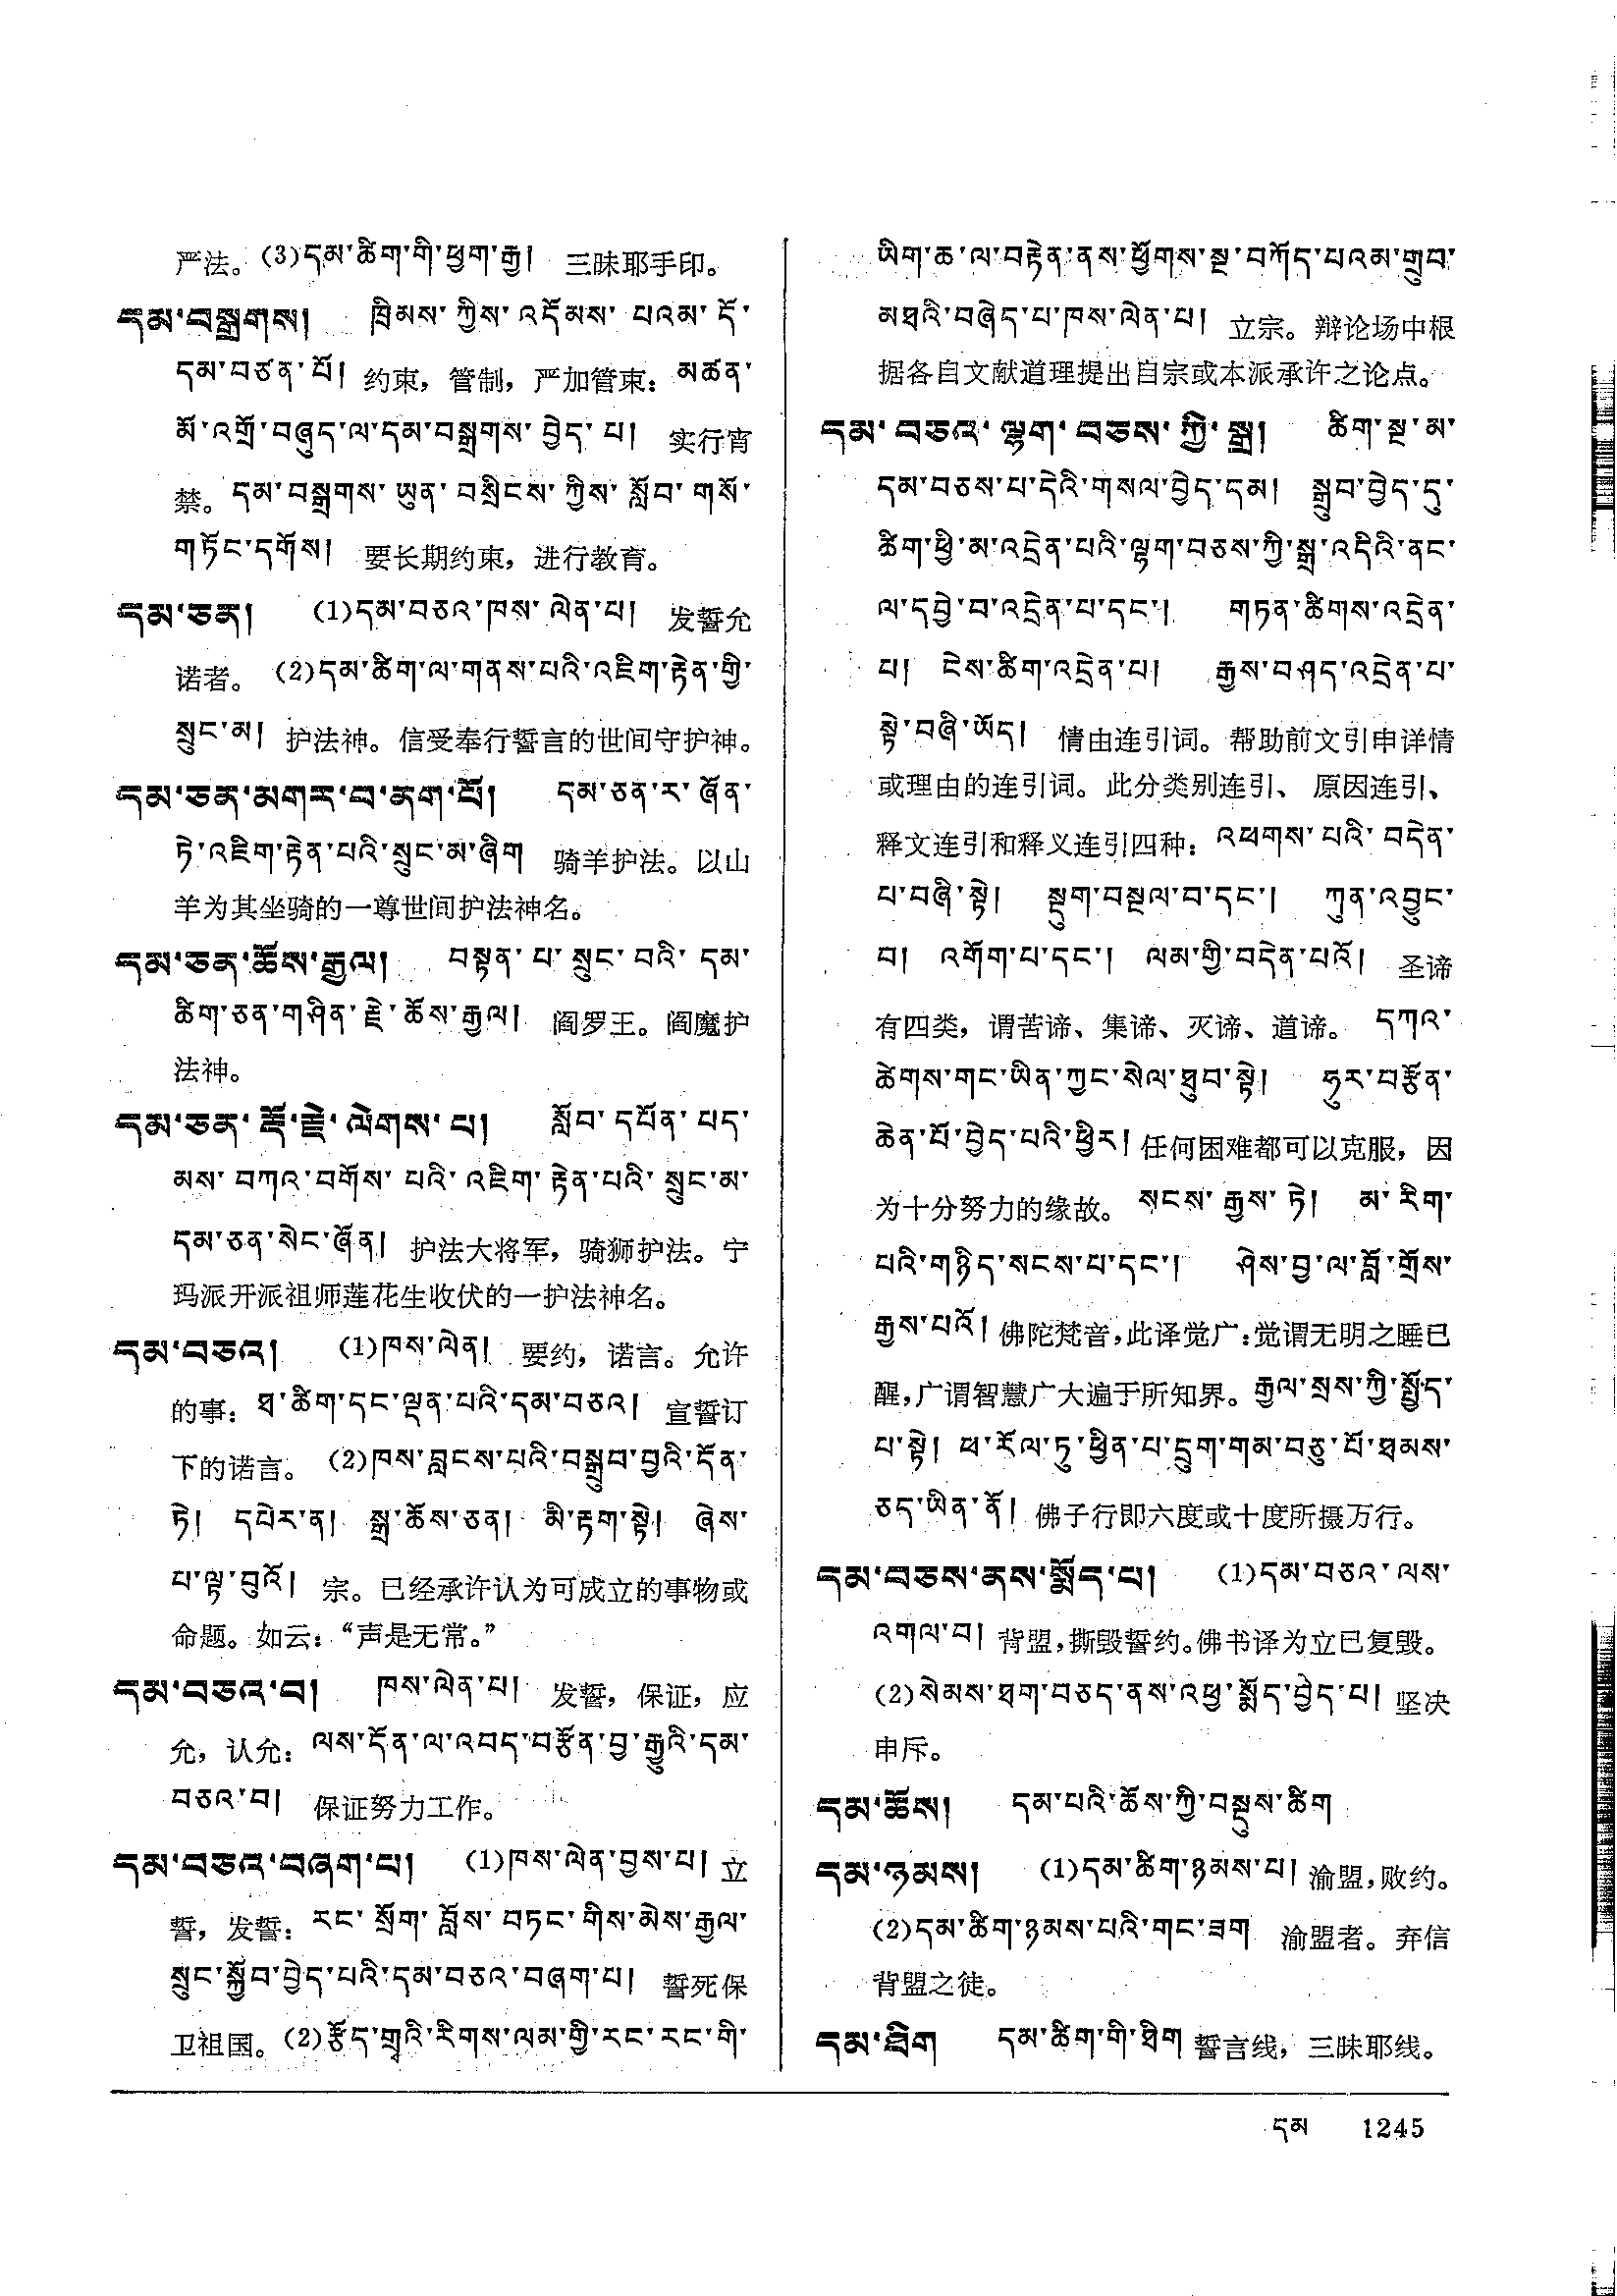 严法。(3)དམ་ཚིག་གི་ཕྱག་རྒྱ། 三昧耶手印。
དམ་བསྒྲགས། ཁྲིམས་ཀྱིས་འདོམས་པའམ་དོ་
དམ་བཙན་པོ། 约束，管制，严加管束：མཚན་
མོ་འགྲོ་བཞུད་ལ་དམ་བསྒྲགས་བྱེད་པ། 实行宵
禁。དམ་བསྒྲགས་ཡུན་བསྲིངས་ཀྱིས་སློབ་གསོ་
གཏོང་དགོས། 要长期约束，进行教育。
དམ་ཅན། (1)དམ་བཅའ་ཁས་ལེན་པ། 发誓允
诺者。(2)དམ་ཚིག་ལ་གནས་པའི་འཇིག་རྟེན་གྱི་
སྲུང་མ། 护法神。信受奉行誓言的世间守护神。
དམ་ཅན་མགར་བ་ནག་པོ། དམ་ཅན་ར་ཞོན་
ཏེ་འཇིག་རྟེན་པའི་སྲུང་མ་ཞིག 骑羊护法。以山
羊为其坐骑的一尊世间护法神名。
དམ་ཅན་ཆོས་རྒྱལ། བསྟན་པ་སྲུང་བའི་དམ་
ཚིག་ཅན་གཤིན་རྗེ་ཆོས་རྒྱལ། 阎罗王。阎魔护
法神。
དམ་ཅན་རྡོ་རྗེ་ལེགས་པ། སློབ་དཔོན་པད་
མས་བཀའ་བགོས་པའི་འཇིག་རྟེན་པའི་སྲུང་མ་
དམ་ཅན་སེང་ཞོན། 护法大将军，骑狮护法。宁
玛派开派祖师莲花生收伏的一护法神名。
དམ་བཅའ། (1)ཁས་ལེན། 要约，诺言。允许
的事：ཐ་ཚིག་དང་ལྡན་པའི་དམ་བཅའ། 宣誓订
下的诺言。(2)ཁས་བླངས་པའི་བསྒྲུབ་བྱའི་དོན་
ཏེ། དཔེར་ན། སྒྲ་ཆོས་ཅན། མི་རྟག་སྟེ། ཞེས་
པ་ལྟ་བུའོ། 宗。已经承许认为可成立的事物或
命题。如云：“声是无常。”
དམ་བཅའ་བ། ཁས་ལེན་པ། 发誓，保证，应
允，认允：ལས་དོན་ལ་འབད་བརྩོན་བྱ་རྒྱུའི་དམ་
བཅའ་བ། 保证努力工作。
དམ་བཅའ་བཞག་པ། (1)ཁས་ལེན་བྱས་པ། 立
誓，发誓：རང་སྲོག་བློས་བཏང་གིས་མེས་རྒྱལ་
སྲུང་སྐྱོབ་བྱེད་པའི་དམ་བཅའ་བཞག་པ། 誓死保
卫祖国。(2)རྩོད་གྲྭའི་རིགས་ལམ་གྱི་རང་རང་གི་
ཡིག་ཆ་ལ་བརྟེན་ནས་ཕྱོགས་སྔ་བཀོད་པའམ་གྲུབ་
མཐའི་བཞེད་པ་ཁས་ལེན་པ། 立宗。辩论场中根
据各自文献道理提出自宗或本派承许之论点。
དམ་བཅའ་ལྷག་བཅས་ཀྱི་སྒྲ། ཚིག་སྔ་མ་
དམ་བཅས་པ་དེའི་གསལ་བྱེད་དམ། སྒྲུབ་བྱེད་དུ་
ཚིག་ཕྱི་མ་འདྲེན་པའི་ལྷག་བཅས་ཀྱི་སྒྲ་འདིའི་ནང་
ལ་དབྱེ་བ་འདྲེན་པ་དང་། གཏན་ཚིགས་འདྲེན་
པ། ངེས་ཚིག་འདྲེན་པ། རྒྱས་བཤད་འདྲེན་པ་
སྟེ་བཞི་ཡོད། 情由连引词。帮助前文引申详情
或理由的连引词。此分类别连引、原因连引、
释文连引和释义连引四种：འཕགས་པའི་བདེན་
པ་བཞི་སྟེ། སྡུག་བསྔལ་བ་དང་། ཀུན་འབྱུང་
བ། འགོག་པ་དང་། ལམ་གྱི་བདེན་པའོ། 圣谛
有四类，谓苦谛、集谛、灭谛、道谛。དཀའ་
ཚེགས་གང་ཡིན་ཀྱང་སེལ་ཐུབ་སྟེ། ཧུར་བརྩོན་
ཆེན་པོ་བྱེད་པའི་ཕྱིར། 任何困难都可以克服，因
为十分努力的缘故。སངས་རྒྱས་ཏེ། མ་རིག་
པའི་གཉིད་སངས་པ་དང་། ཤེས་བྱ་ལ་བློ་གྲོས་
རྒྱས་པའོ། 佛陀梵音，此译觉广：觉谓无明之睡已
醒，广谓智慧广大遍于所知界。རྒྱལ་སྲས་ཀྱི་སྤྱོད་
པ་སྟེ། ཕ་རོལ་ཏུ་ཕྱིན་པ་དྲུག་གམ་བཅུ་པོ་ཐམས་
ཅད་ཡིན་ནོ། 佛子行即六度或十度所摄万行。
དམ་བཅས་ནས་སྨོད་པ། (1)དམ་བཅའ་ལས་
འགལ་བ། 背盟，撕毁誓约。佛书译为立已复毁。
(2)སེམས་ཐག་བཅད་ནས་འཕྱ་སྨོད་བྱེད་པ། 坚决
申斥。
དམ་ཆོས། དམ་པའི་ཆོས་ཀྱི་བསྡུས་ཚིག
དམ་ཉམས། (1)དམ་ཚིག་ཉམས་པ། 渝盟，败约。
(2)དམ་ཚིག་ཉམས་པའི་གང་ཟག 渝盟者。弃信
背盟之徒。
དམ་ཐིག དམ་ཚིག་གི་ཐིག 誓言线，三昧耶线。
དམ 1245